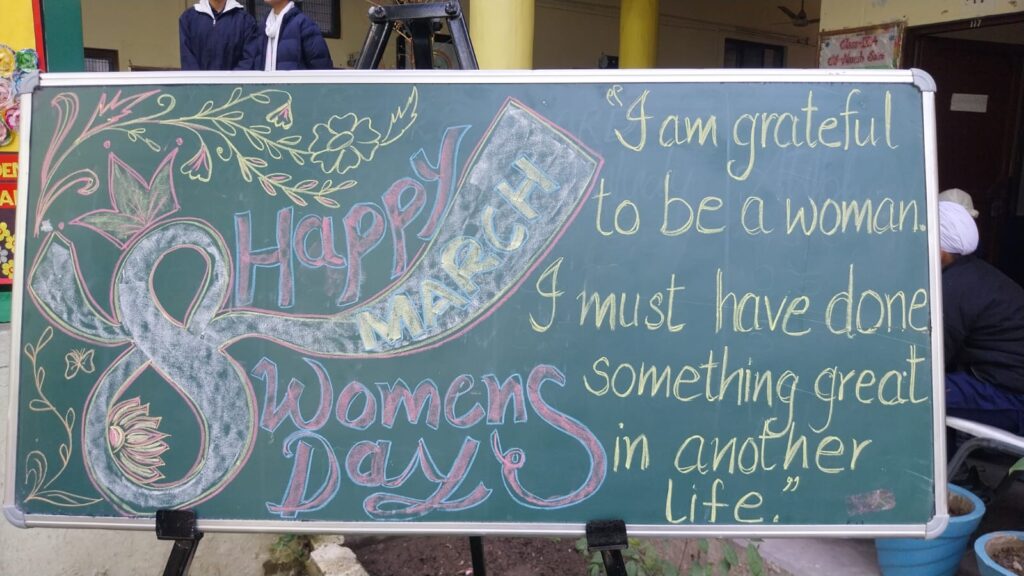 8
MARCH
Happy
Womens
Day
"I am grateful
to be a woman.
I must have done
something great
in another
life."